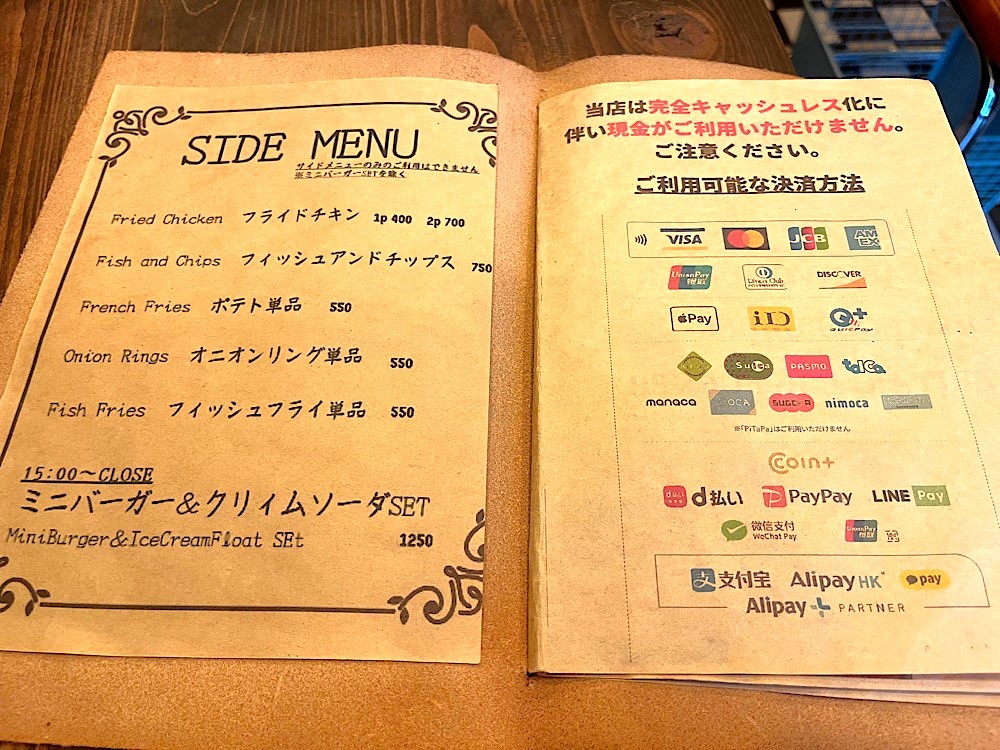 SIDE MENU
サイドメニューのみのご利用はできません
※ミニバーガーSETを除く
Fried Chicken フライドチキン 1p 400 2p 700
Fish and Chips フィッシュアンドチップス 750
French Fries ポテト単品 550
Onion Rings オニオンリング単品 550
Fish Fries フィッシュフライ単品 550
15:00〜CLOSE
ミニバーガー&クリィムソーダSET
MiniBurger&IceCreamFloat SEt 1250
当店は完全キャッシュレス化に
伴い現金がご利用いただけません。
ご注意ください。
ご利用可能な決済方法
VISA JCB AMEX
UnionPay 銀联 Diners Club INTERNATIONAL DISCOVER
Pay iD QUICPay
Suica PASMO toica
manaca ICOCA SUGOCA nimoca
※「PiTaPa」はご利用いただけません
Coin+
d払い d払い PayPay LINE Pay
微信支付
WeChat Pay UnionPay 银联
支付宝 Alipay HK pay
Alipay+ PARTNER